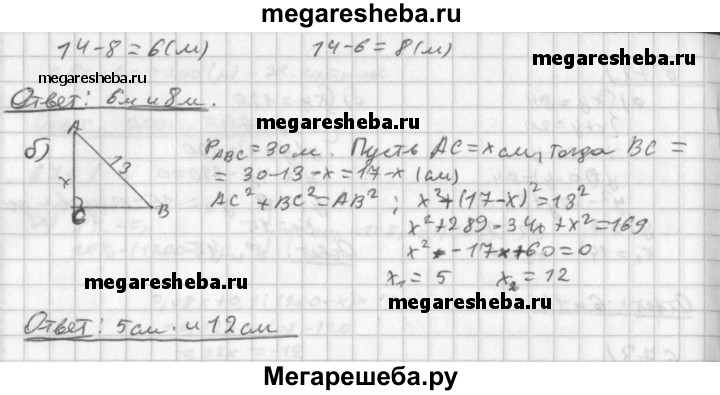 megaresheba.ru
14-8=6(м) 14-6=8(м)
megaresheba.ru
Ответ: 6м и 8м.
megaresheba.ru
б) A 13 x C B
P_ABC=30 м. Пусть AC=x см, тогда BC =
= 30-13-x=17-x (см)
AC²+BC²=AB² ; x²+(17-x)²=13²
x²+289-34x+x²=169
x²-17x+60=0
megaresheba.ru
x₁=5 x₂=12
megaresheba.ru
Ответ: 5см. и 12см
Мегарешеба.ру